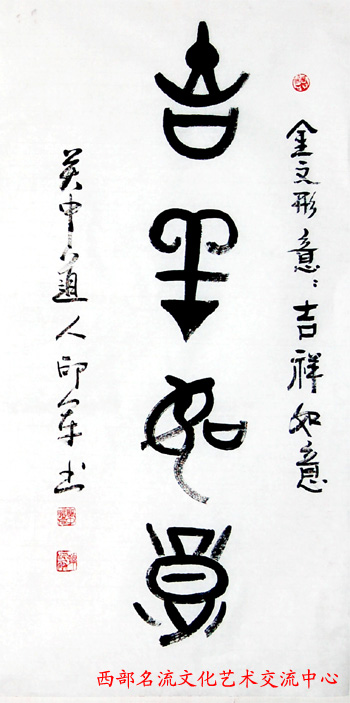 金文形意：吉祥如意
吉羊如意
中道人印军书
西部名流文化艺术交流中心